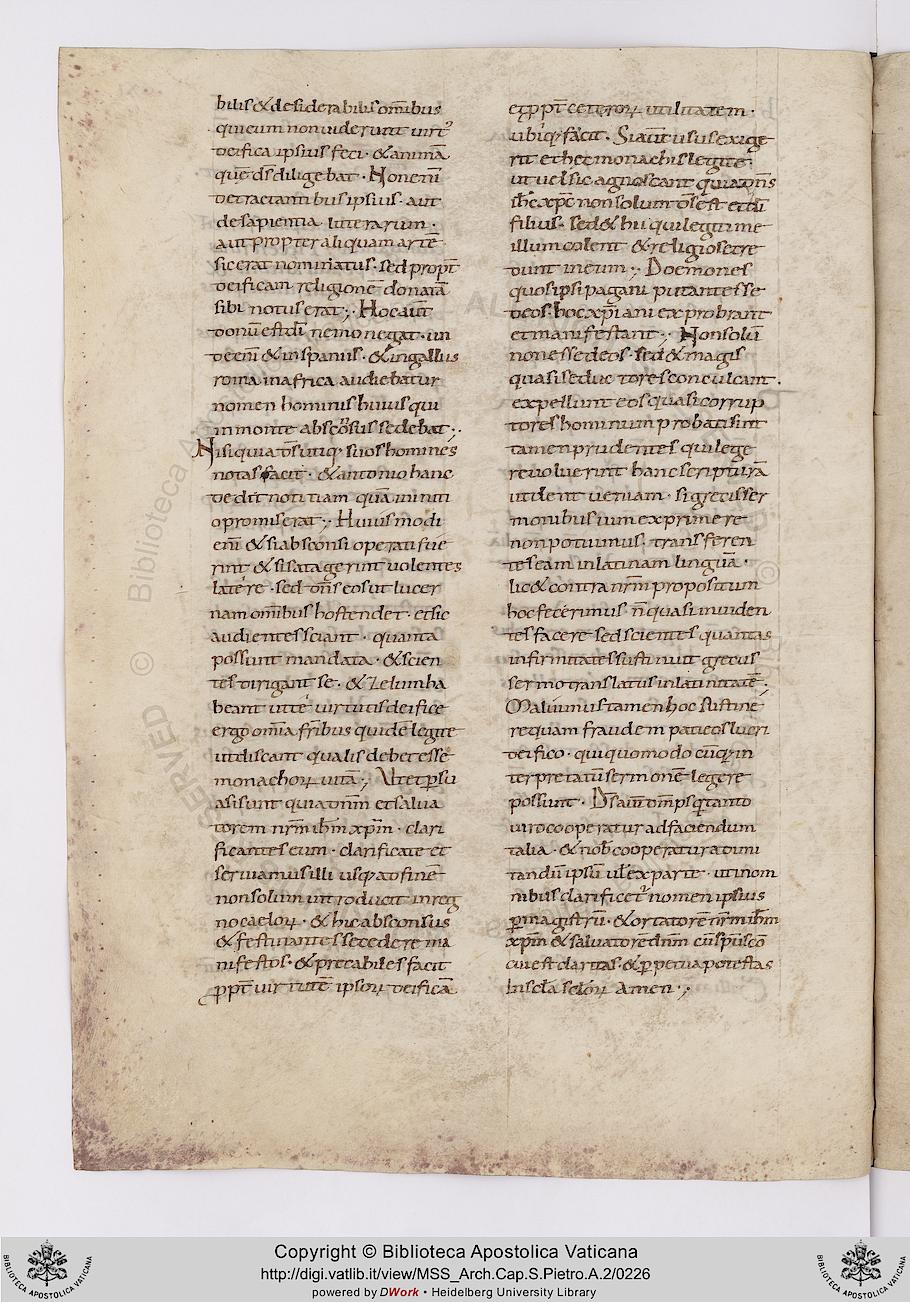 bilis & desiderabilis om̅ibus
qui eum non uiderunt uirt᷒
deifica ipsius feci · & animā
quę ds̄ diligebat · Non eni᷒
detractantibus ipsius · aut
de sapientia litterarum ·
aut propter aliquam artē
sic erat nominatus · sed propt̄
deificam religionē donatā
sibi notus erat ; Hoc aūt
donū est dī nemo negat · un
de enī & in spaniis · & in gallus
roma in africa audiebatur
nomen hominis huius qui
in monte absconsus sedebat ;
Nisi quia ds̄ utiq; suos homines
notas facit · & antonio hanc
dedit notitiam quā in initi
o promiserat ; Huius modi
enī & si absconsi operati fue
rint & si satagerint uolentes
latere · sed dn̄s eos ut lucer
nam om̅ibus hostendet · et sic
audientes sciant · quanta
possunt mandata · & scien
tes dirigant se · & zelum ha
beant uitę uirtutis deifice
ergo omīa fr̄ibus quidē legite
ut discant qualis debet esse
monachoꝝ uita ; Ut et ꝑsu
asi sunt quia dn̄m et salua
torem nr̄m ih̄m xp̄m · clari
ficantes eum · clarificate et
seruiamus illi usq; ad finē
non solum introducit in reg
no caeloꝝ · & hic absconsus
& festinantes secedere ma
nifestos · & precabiles facit
ꝓpt̄ uirtutē ipsoꝝ deificā
et ꝓpt̄ ceteroꝝ utilitatem ·
ubiq; facit · Si aūt usus exige
rit et hec monachis legite ·
ut uel sic agnoscant quia dn̄s
ih̄c xp̄c non solum ds̄ est et dī
filius · sed & hii qui legitime
illum colent & religiose cre
dunt in eum ; Doemones
quos ipsi pagani putant esse
deos · hoc xp̄iani exprobrant
et manifestant ; Non solū
non esse deos · sed & magis
quasi seductores conculcant ·
expellunt eos quasi corrup
tores hominum probati sint
tamen prudentes qui lege
re uoluerint hanc scripturā
ut dent ueniam · si grecis ser
monibus uim exprimere
non potuimus · transferen
tes eam in latinam linguā ·
lic& contra nr̄m propositum
hoc fecerimus n̄ quasi inuiden
tes facere sed scientes quantas
infirmitates sustinuit grecus
sermo translatus in latinitatē ;
Maluimus tamen hoc sustine
re quam fraudem pati eos lucri
deifico · qui quomodo cūq; in
terpretatū sermonē legere
possunt · Ds̄ aūt om̄ps q tanto
uiro cooperatur ad faciendum
talia · & nob̄ cooperatur ad imi
tandū ipsū uł ex parte · ut in om
nibus clarificet᷒ nomen ipsius
ꝑ magistrū · & ortatorē nr̄m ih̄m
xp̄m & saluatorē dn̄m cū sp̄u sc̄o
cui est claritas · & perpetua potestas
In sc̄la sc̄loꝝ Amen ;
Copyright © Biblioteca Apostolica Vaticana
http://digi.vatlib.it/view/MSS_Arch.Cap.S.Pietro.A.2/0226
powered by DWork • Heidelberg University Library